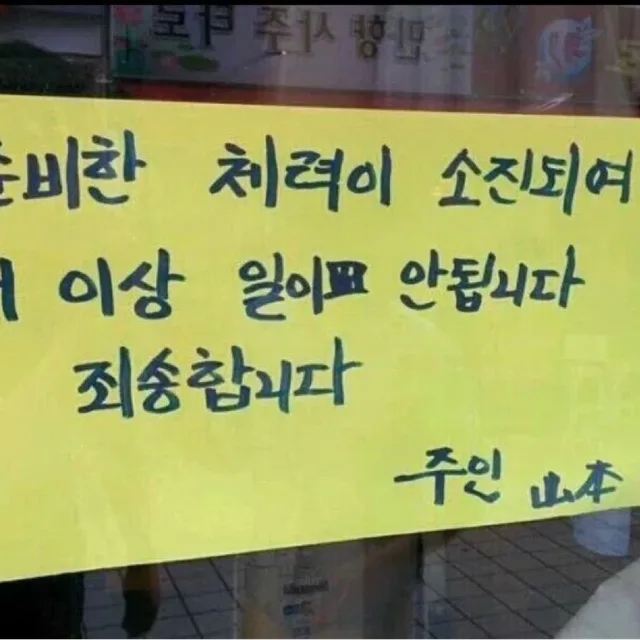 사주 타로
준비한 체력이 소진되여
더 이상 일이 안됩니다
죄송합니다
주인 山本